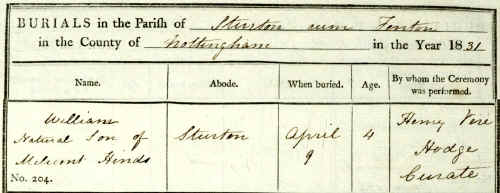 BURIALS in the Parish of Sturton cum Fenton
in the County of Nottingham in the Year 1831
Name. Abode. When buried. Age. By whom the Ceremony was performed.
William
Natural Son of
Melicent Hinds
No. 204.
Sturton
April
9
4
Henry Vere
Hodge
Curate